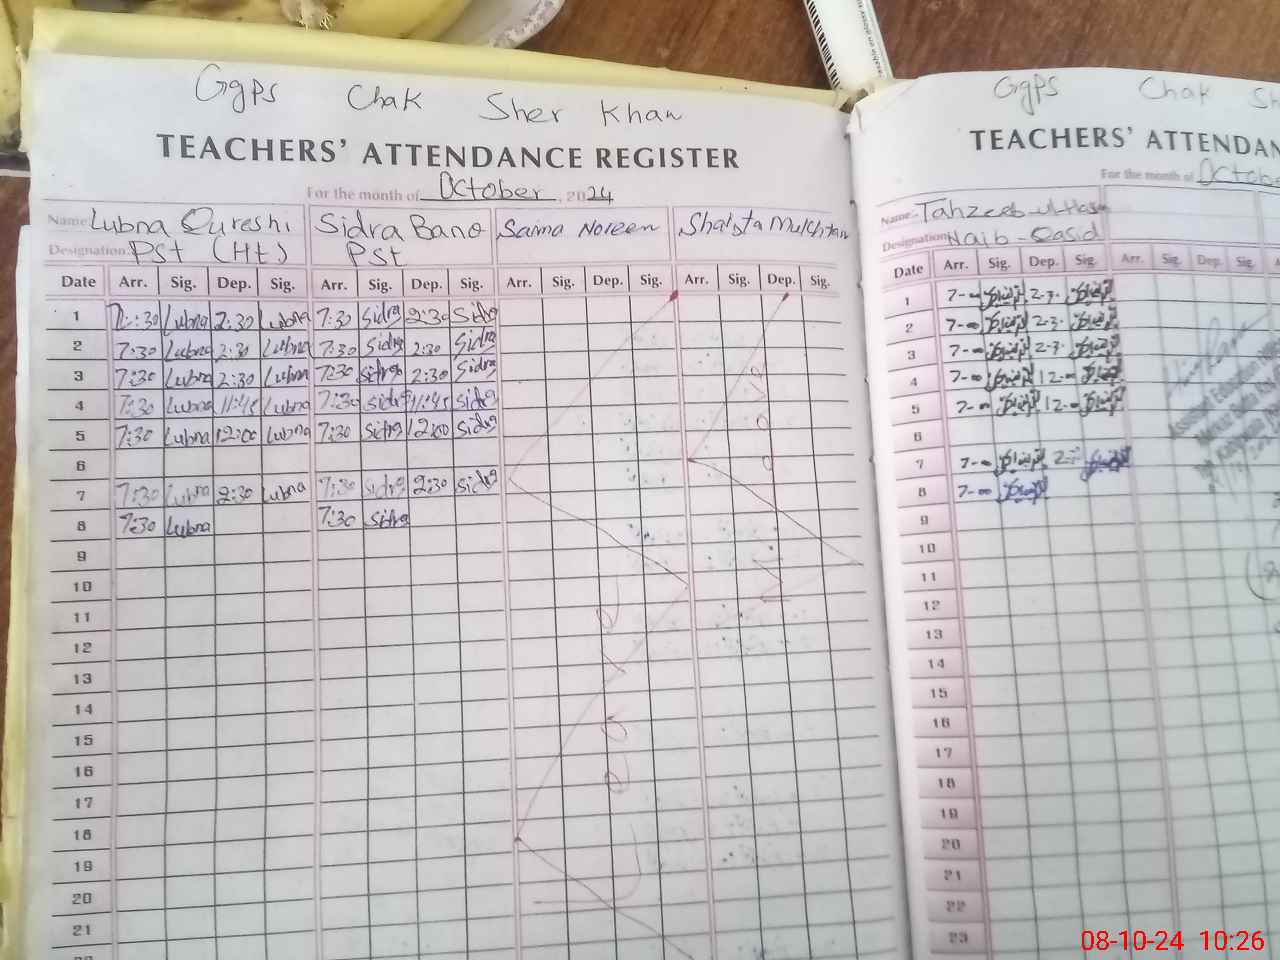 Ggps Chak Sher Khan
TEACHERS' ATTENDANCE REGISTER
For the month of October, 2024
Name Lubna Qureshi Sidra Bano Saima Noreen Shaista Mukhtar
Designation Pst (Ht) Pst
Date Arr. Sig. Dep. Sig. Arr. Sig. Dep. Sig. Arr. Sig. Dep. Sig. Arr. Sig. Dep. Sig.
1 7:30 Lubna 2:30 Lubna 7:30 Sidra 2:30 Sidra
2 7:30 Lubna 2:30 Lubna 7:30 Sidra 2:30 Sidra
3 7:30 Lubna 2:30 Lubna 7:30 Sidra 2:30 Sidra
4 7:30 Lubna 11:45 Lubna 7:30 Sidra 11:45 Sidra
5 7:30 Lubna 12:00 Lubna 7:30 Sidra 12:00 Sidra
6
7 7:30 Lubna 2:30 Lubna 7:30 Sidra 2:30 Sidra
8 7:30 Lubna 7:30 Sidra
9
10
11
12
13
14
15
16
17
18
19
20
21
Ggps Chak Sh
TEACHERS' ATTENDAN
For the month of Octobe
Name Tahzeeb-ul-Hasan
Designation Naib-Qasid
Date Arr. Sig. Dep. Sig. Arr. Sig. Dep. Sig.
1 7-00 2-3
2 7-00 2-3
3 7-00 2-3
4 7-00 12-00
5 7-00 12-00
6
7 7-00
8 7-00
9
10
11
12
13
14
15
16
17
18
19
20
21
22
23
08-10-24 10:26